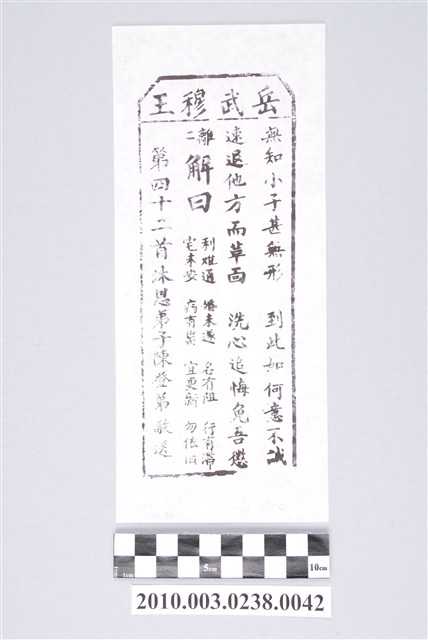 岳武穆王
無知小子甚無形 到此如何意不誠
速退他方而草面 洗心追悔免吾懲
離二
解曰
利難通 婚未遂 名有阻 行有滯
宅未安 病有祟 宜更新 勿依旧
第四十二首沐恩弟子陳登第敬送
1cm 5cm 10cm
2010.003.0238.0042